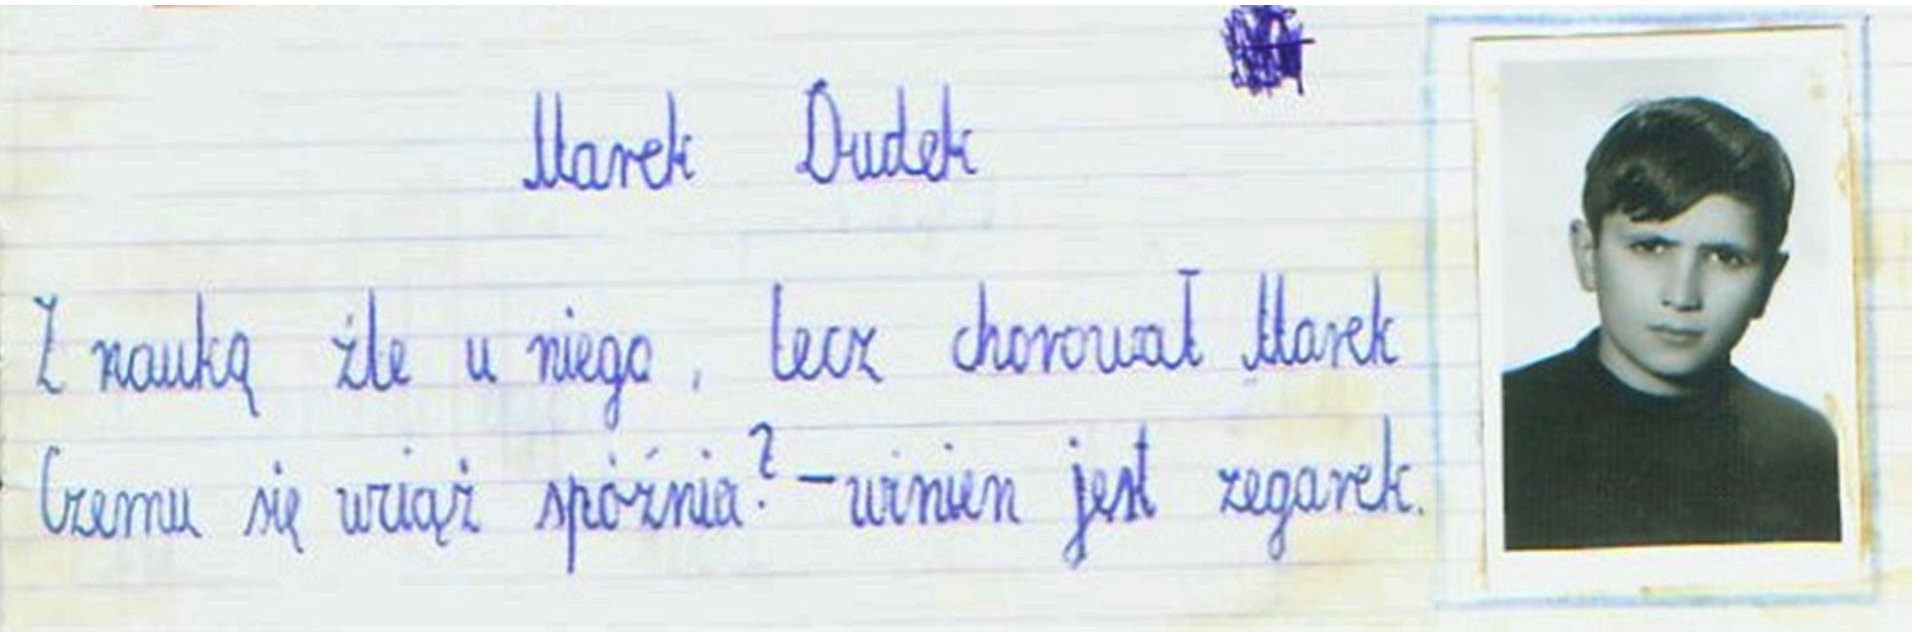 Marek Dudek
Z nauką źle u niego, lecz chorował Marek
Czemu się wciąż spóźnia? – winien jest zegarek.